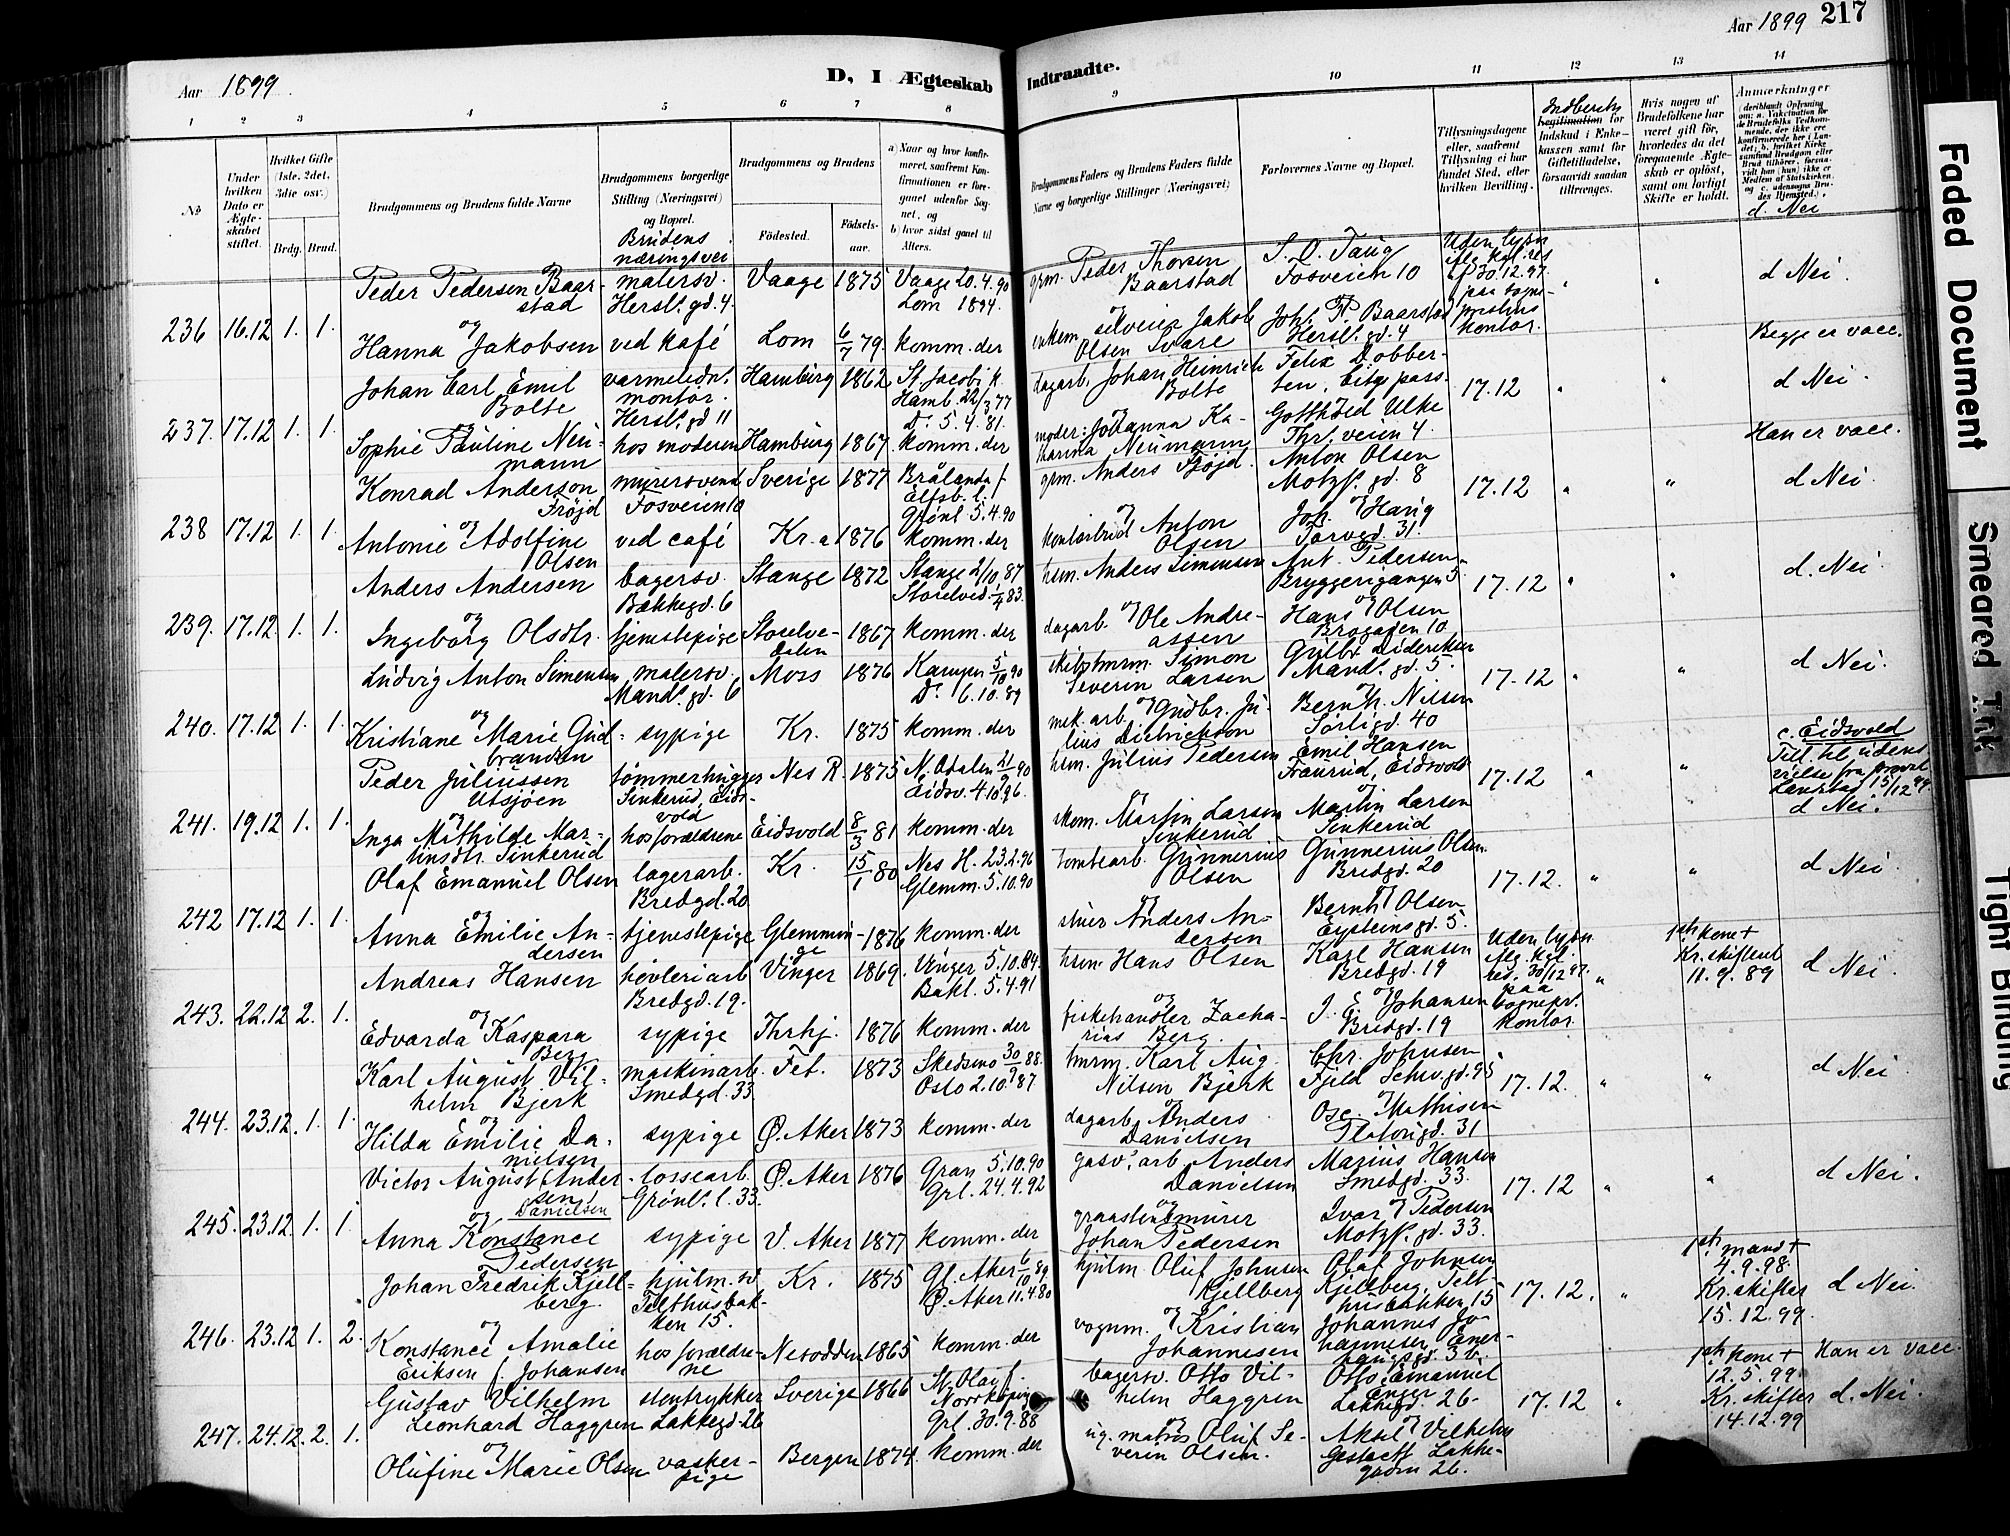 Aar 1899.
D, I Ægteskab Indtraadte.
Aar 1899 217
1 2 3 4 5 6 7 8 9 10 11 12 13 14
No
Under hvilken Dato er Ægteskabet stiftet.
Hvilket Gifte (1ste, 2det, 3die osv.)
Brdg. Brud.
Brudgommens og Brudens fulde Navne
Brudgommens borgerlige Stilling (Næringsvei) og Bopæl.
Brudens næringsvei
Brudgommens og Brudens
Fødested.
Fødselsaar.
a) Naar og hvor konfirmeret, saafremt Konfirmationen er foregaaet udenfor Sognet, og
b) hvor sidst gaaet til Alters.
Brudgommens Faders og Brudens Faders fulde Navne og borgerlige Stillinger (Næringsvei)
Forlovernes Navne og Bopæl.
Tillysningsdagene eller, saafremt Tillysning ei har fundet Sted, efter hvilken Bevilling.
Indberetn
Legitimation for Indskud i Enkekassen samt for Giftetilladelse, forsaavidt saadan tiltrænges.
Hvis nogen af Brudefolkene har været gift før, hvorledes da det foregaaende Ægteskab er opløst, samt om lovligt Skifte er holdt.
Anmærkninger
(deriblandt Oplysning om: a. Vakcination for de Brudefolks Vedkommende, der ikke ere konfirmerede her i Landet; b. hvilket Kirkesamfund Brudgom eller Brud tilhører, forsaavidt han (hun) ikke er Medlem af Statskirken, og c. udensogns Brudes Hjemsted).
d. Nei
236 16.12 1. 1.
Peder Pedersen Baarstad
malersv. Hersl. gd. 4.
Vaage 1875
Vaage 20.4.90
Lom 1894.
grm. Peder Thorsen Baarstad
S. O. Taug
Fosveien 10
Uden lysn
iflg kgl. res
af 30.12.97.
paa sogneprestens kontor.
d Nei.
og
Hanna Jakobsen
ved kafé
Lom 6/7 79.
komm. der
enkem. Silverin Jakob Olsen Svare
Joh. P. Baarstad
Hersl. gd. 4
Begge er vacc.
237. 17.12 1. 1.
Johan Carl Emil Bolte
varmeledn. montør. Hersl. gd 11
Hamburg 1862
St. Jacobi k. Hamb. 22/3 77
Do. 5.4.81.
dagarb. Johan Heinrich Bolte
Felix Dobbersten, Eitge pass.
17.12
d Nei.
og
Sophie Pauline Neumann
hos moderen
Hamburg 1867
komm. der
moder: Johanna Katharina Neumann
Gotthold Ulke
Thrl. veien 4.
Han er vacc.
238 17.12 1. 1.
Konrad Anderson Fröjd
murersvend Fosveien 10
Sverige 1877
Brålanda f. Elfsb. l.
Grønl. 5.4.90
grm. Anders Fröjd.
Anton Olsen
Motzf. gd. 8
17.12
d Nei.
og
Antonie Adolfine Olsen
ved café
Kr.a 1876
komm. der
kontorbud Anton Olsen
Joh. Haug
Torvgd. 31.
239. 17.12. 1. 1.
Anders Andersen
bagersv. Bækkegd. 6
Stange 1872
Stange 2/10 87
Storelved. 1/4 83.
hsm. Anders Simensen
Ant. Pedersen
Bryggerigangen 5
17.12
d. Nei.
og
Ingeborg Olsdtr.
tjenestepige
Storelvedalen 1867
komm. der
dagarb. Ole Andreassen
Hans Olsen
Brogaden 10
240. 17.12 1. 1.
Ludvig Anton Simensen
malersv. Mands. gd. 6
Moss 1876
Kampen 5/10 90
Do. 6.10.89
skibstmrm. Simon Severin Larsen
Gulbr. Dideriksen
Mands. gd. 5.
17.12
d Nei.
og
Kristiane Marie Gudbrandsen
sypige
Kr. 1875
komm. der
mek. arb. Gudbr. Julius Didrickson
Bernh. Nilsen
Sørligd. 40
241. 19.12 1. 1.
Peder Juliussen Utsjøen
tømmerhugger Sinkerud, Eidsvold
Nes R. 1875
N. Odalen 21/9 90
Eidsv. 4.10.96.
hsm. Julius Pedersen
Emil Hansen
Fraurud, Eidsvold
17.12
c. Eidsvold
Till. til udens vielse fra 15/12 99.
d Nei.
og
Inga Mathilde Martinsdtr. Sinkerud
hos forældrene
Eidsvold 8/3 81
komm. der
skom. Martin Larsen Sinkerud
Martin Larsen Sinkerud
242 17.12 1. 1.
Olaf Emanuel Olsen
lagerarb. Bredgd. 20
Kr. 15/1 80
Nes H. 23.2.96
Glemm. 5.10.90
tomtearb. Gunnerius Olsen
Gunnerius Olsen
Bredgd. 20
17.12.
d Nei.
og
Anna Emilie Andersen
tjenestepige
Glemminge 1876
komm. der
stuer Anders Andersen
Bernh. Olsen
Eysteinsgd. 5.
243. 22.12 2. 1.
Andreas Hansen
høvleriarb Bredgd. 19.
Vinger 1869.
Vinger 5.10.84.
Bakl. 5.4.91
hsm. Hans Olsen
Karl Hansen
Bredgd. 19
Uden lysn
iflg. kgl. res. 30/12 97. paa sognepr. kontor
1ste kone +
Kr. skiftent
11.9.89
d Nei.
og
Edvarda Kaspara Berg
sypige
Thrhj. 1876
komm. der
fiskehandler Zacharias Berg.
J. E. Johansen
Bredgd. 19
244. 23.12. 1. 1.
Karl August Vilhelm Bjerk
maskinarb. Smedgd. 33
Fet. 1873
Skedsmo 30/9 88.
Oslo 2.10.87
tmrm. Karl Aug. Nilsen Bjerk
Chr. Johnsen
Fjeld Schw.gd. 95
17.12.
d Nei
og
Hilda Emilie Danielsen
sypige
Ø. Aker 1873
komm. der
dagarb. Anders Danielsen
Osc. Mathisen
Platougd. 31
245. 23.12. 1. 1.
Victor August Andersen Danielsen
lossearb. Grønl. l. 33.
Ø. Aker 1876
Gran 5.10.90
Grl. 24.4.92
gasv. arb. Anders Danielsen
Marius Hansen
Smedgd. 33.
17.12
d Nei.
og
Anna Konstance Pedersen
sypige
V. Aker 1877
komm. der
graastensmurer Johan Pedersen
Ivar Pedersen
Motzf. gd. 33.
246. 23.12 1. 2.
Johan Fredrik Kjellberg.
hjulm. sv Telthusbakken 15.
Kr. 1875
Gl. Aker 6/10 89
Ø. Aker 11.4.80
hjulm. Oluf Johnsen Kjellberg
Olaf Johnsen Kjellberg, Telthusbakken 15
17.12.
1ste mand +
4.9.98.
Kr. skifter
15.12.99.
d Nei.
og
Konstance Amalie Eriksen f. Johansen
hos forældrene
Nesodden 1865
komm. der
vognm. Kristian Johannesen
Johannes Johannesen Enerhaugsgd. 3 b.
247. 24.12. 2. 1.
Gustav Vilhelm Leonhard Haggren
stentrykker Lakkegd. 26
Sverige 1866
St. Olai f. Norrköping
Grl. 30.9.88
bagersv. Otto Vilhelm Haggren
Otto Emanuel Enger
Lakkegd. 26.
17.12
1ste kone +
12.5.99.
Kr. skifter
14.12.99
Han er vacc.
d. Nei.
og
Olufine Marie Olsen
vaskerpige
Bergen 1874.
komm. der
ug. matros Oluf Severin Olsen.
Aksel Vilhelm
Lakkegaden 26.
Faded Document
Smeared Ink
Tight Binding